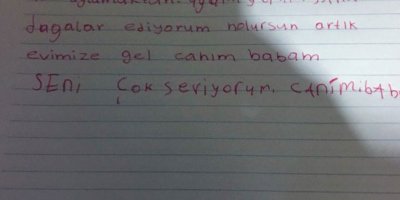 dagalar ediyorum nolursun artık
evimize gel canım babam
SENİ Çok seviyorum. CANIM.bAb